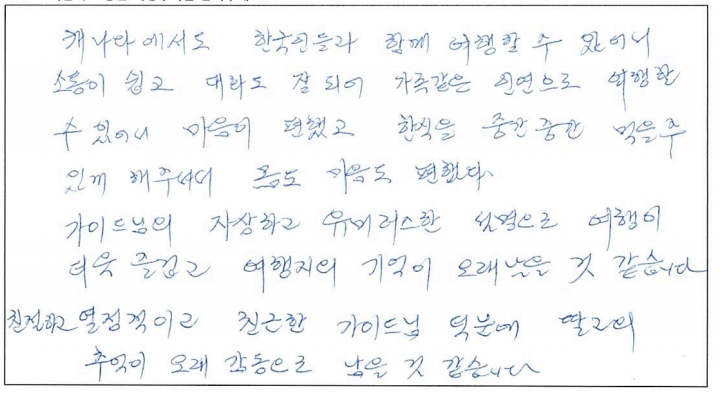 캐나다에서도 한국인들과 함께 여행할 수 있어서
소통이 쉽고 대화도 잘 되어 가족같은 인연으로 여행할
수 있어서 마음이 편했고 한식을 중간중간 먹을수
있게 해주셔서 몸도 마음도 편했다.
가이드님의 자상하고 유머러스한 설명으로 여행이
더욱 즐겁고 여행지의 기억이 오래남을 것 같습니다
친절하고 열정적이고 친근한 가이드님 덕분에 딸과의
추억이 오래 감동으로 남을 것 같습니다